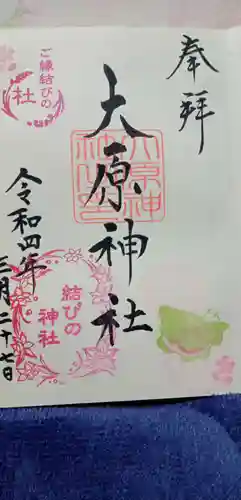 奉拝
大原神社
令和四年
三月二十七日
ご縁結びの
社
結びの
神社